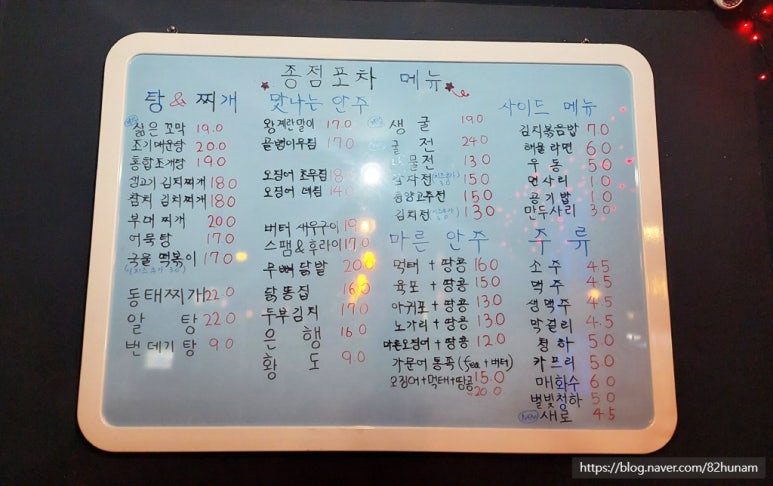 종점포차 메뉴
탕 & 찌개
삶은 꼬막 19.0
조기매운탕 20.0
홍합조개탕 19.0
생고기 김치찌개 18.0
참치 김치찌개 18.0
부대찌개 20.0
어묵탕 17.0
국물 떡볶이 17.0
동태찌개 22.0
알 탕 22.0
번데기탕 9.0
맛나는 안주
왕계란말이 17.0
골뱅이무침 17.0
오징어 초무침 18.5
오징어 데침 14.0
버터 새우구이 19.0
스팸&후라이 17.0
무뼈 닭발 20.0
닭똥집 16.0
두부김치 17.0
은 행 16.0
황 도 9.0
생 굴 19.0
굴 전 24.0
해물전 13.0
감자전 15.0
땡고추전 15.0
김치전 13.0
마른 안주
먹태 + 땅콩 16.0
육포 + 땅콩 15.0
아귀포 + 땅콩 13.0
노가리 + 땅콩 13.0
마른오징어 + 땅콩 12.0
가문어 통족 ( + 버터) 15.0
오징어+먹태+땅콩 20.0
사이드 메뉴
김치볶음밥 7.0
해물라면 6.0
우 동 5.0
면사리 1.0
공기밥 1.0
만두사리 3.0
주 류
소 주 4.5
맥 주 4.5
생맥주 4.5
막걸리 4.5
청 하 5.0
카프리 5.0
매화수 6.0
별빛청하 5.0
NEW 새로 4.5
https://blog.naver.com/82hunam